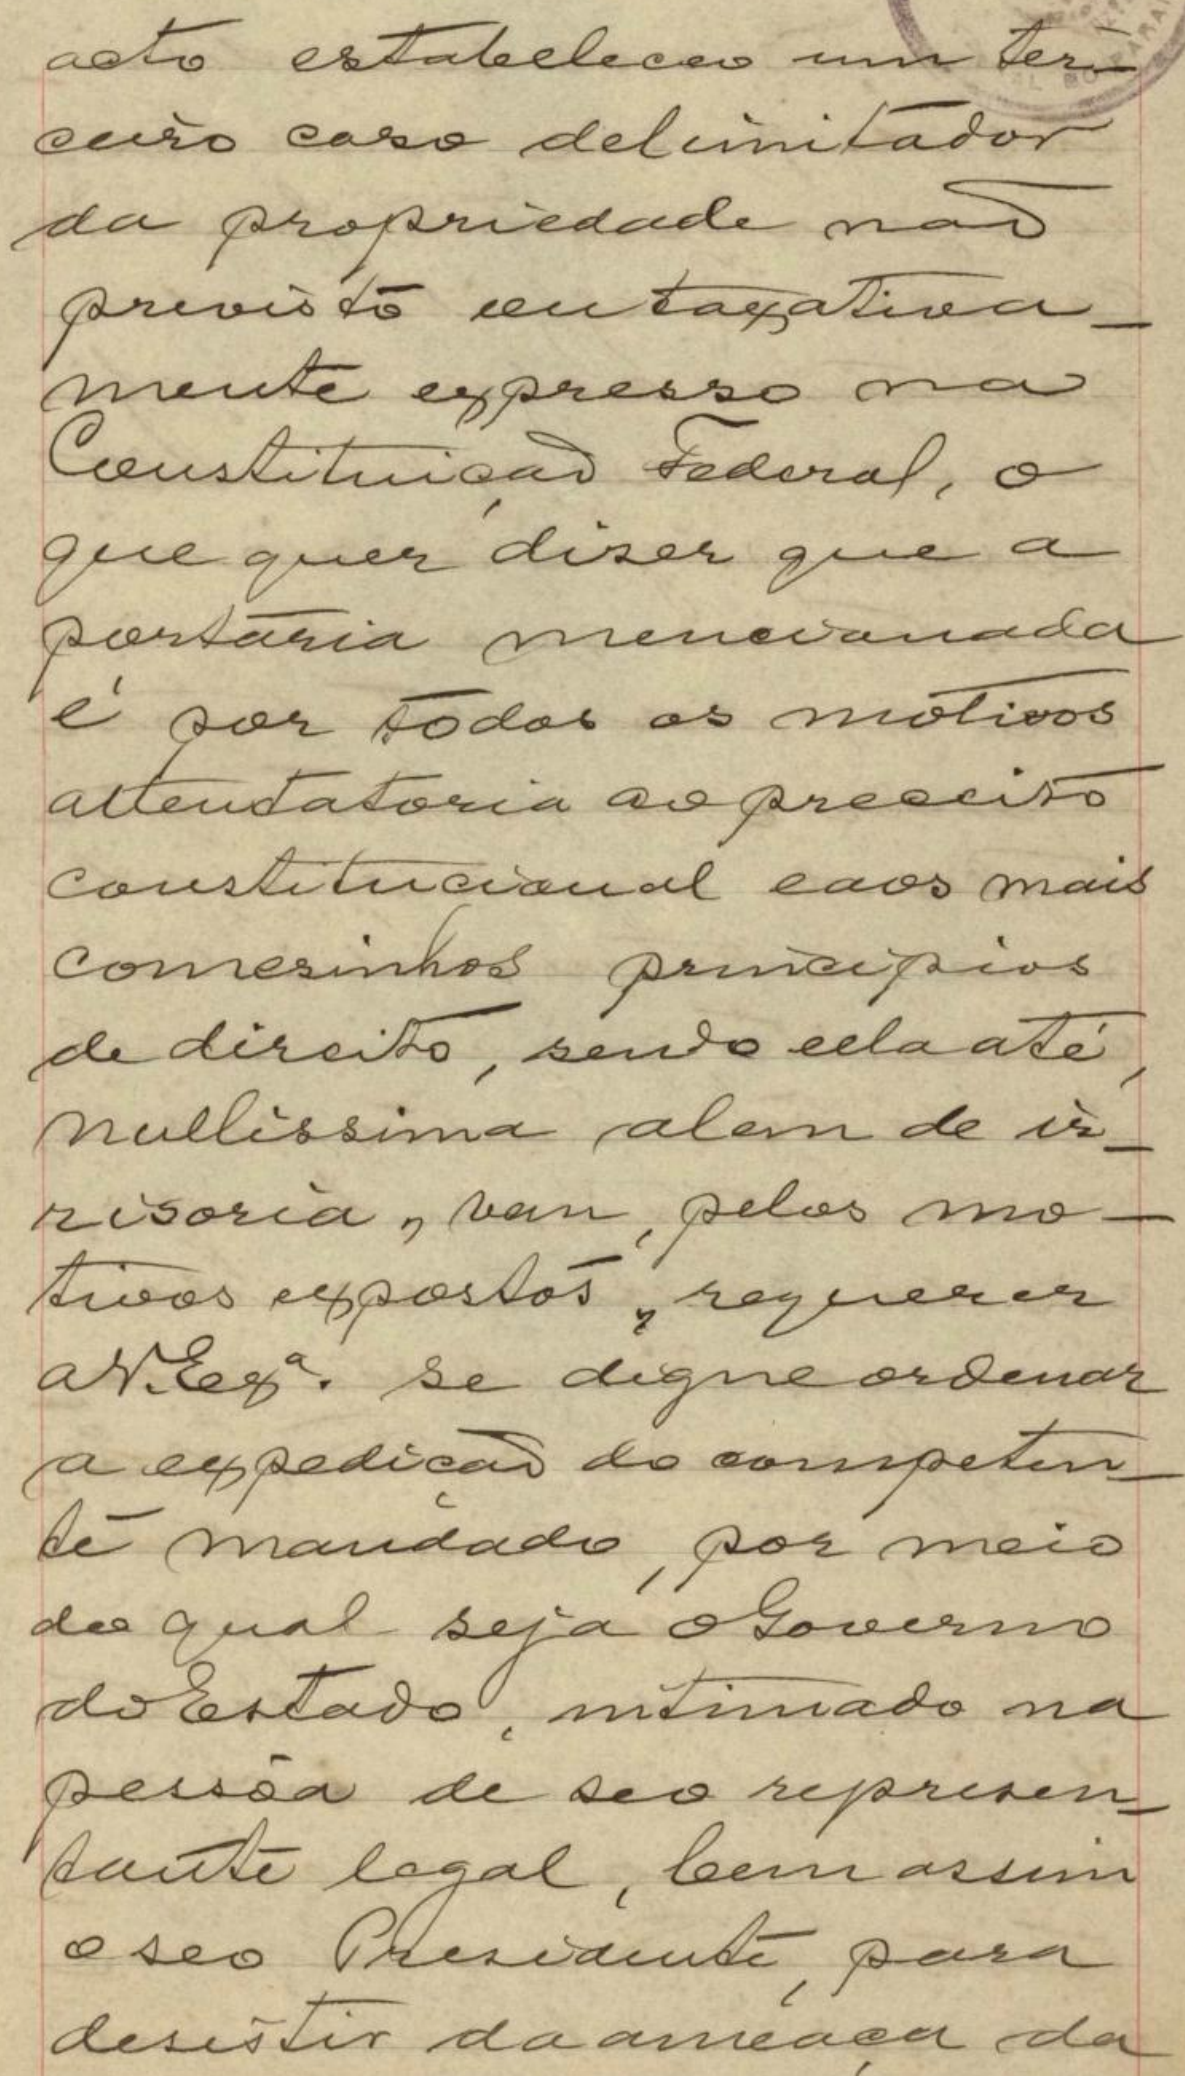 acto estabeleceo um ter-
ceiro caso delimitador
da propriedade não
previsto ou taxativa-
mente expresso na
Constituição Federal, o
que quer diser que a
portaria mencionada
é por todos os motivos
attentatoria ao preceito
constitucional e aos mais
comesinhos principios
de direito, sendo ella até,
nullissima alem de ir-
risoria, vem, pelos mo-
tivos expostos, requerer
a V. Exª. se digne ordenar
a expedição do competen-
te mandado, por meio
do qual seja o Governo
do Estado, intimado na
pessôa de seo represen-
tante legal, bem assim
o seo Presidente, para
desistir da ameaça da